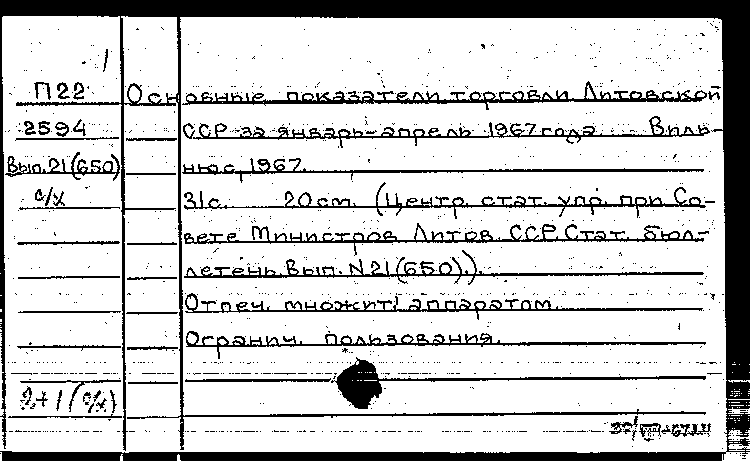 П22 Основные показатели торговли Литовской
2594 ССР за январь-апрель 1967 года. — Виль-
Вып.21(650) нюс, 1967.
с/х 31с. 20 см. (Центр. стат. упр. при Со-
вете Министров Литов. ССР. Стат. бюл-
летень. Вып. N 21(650).).
Отпеч. множит. аппаратом.
Огранич. пользования.
2+1 (с/х)